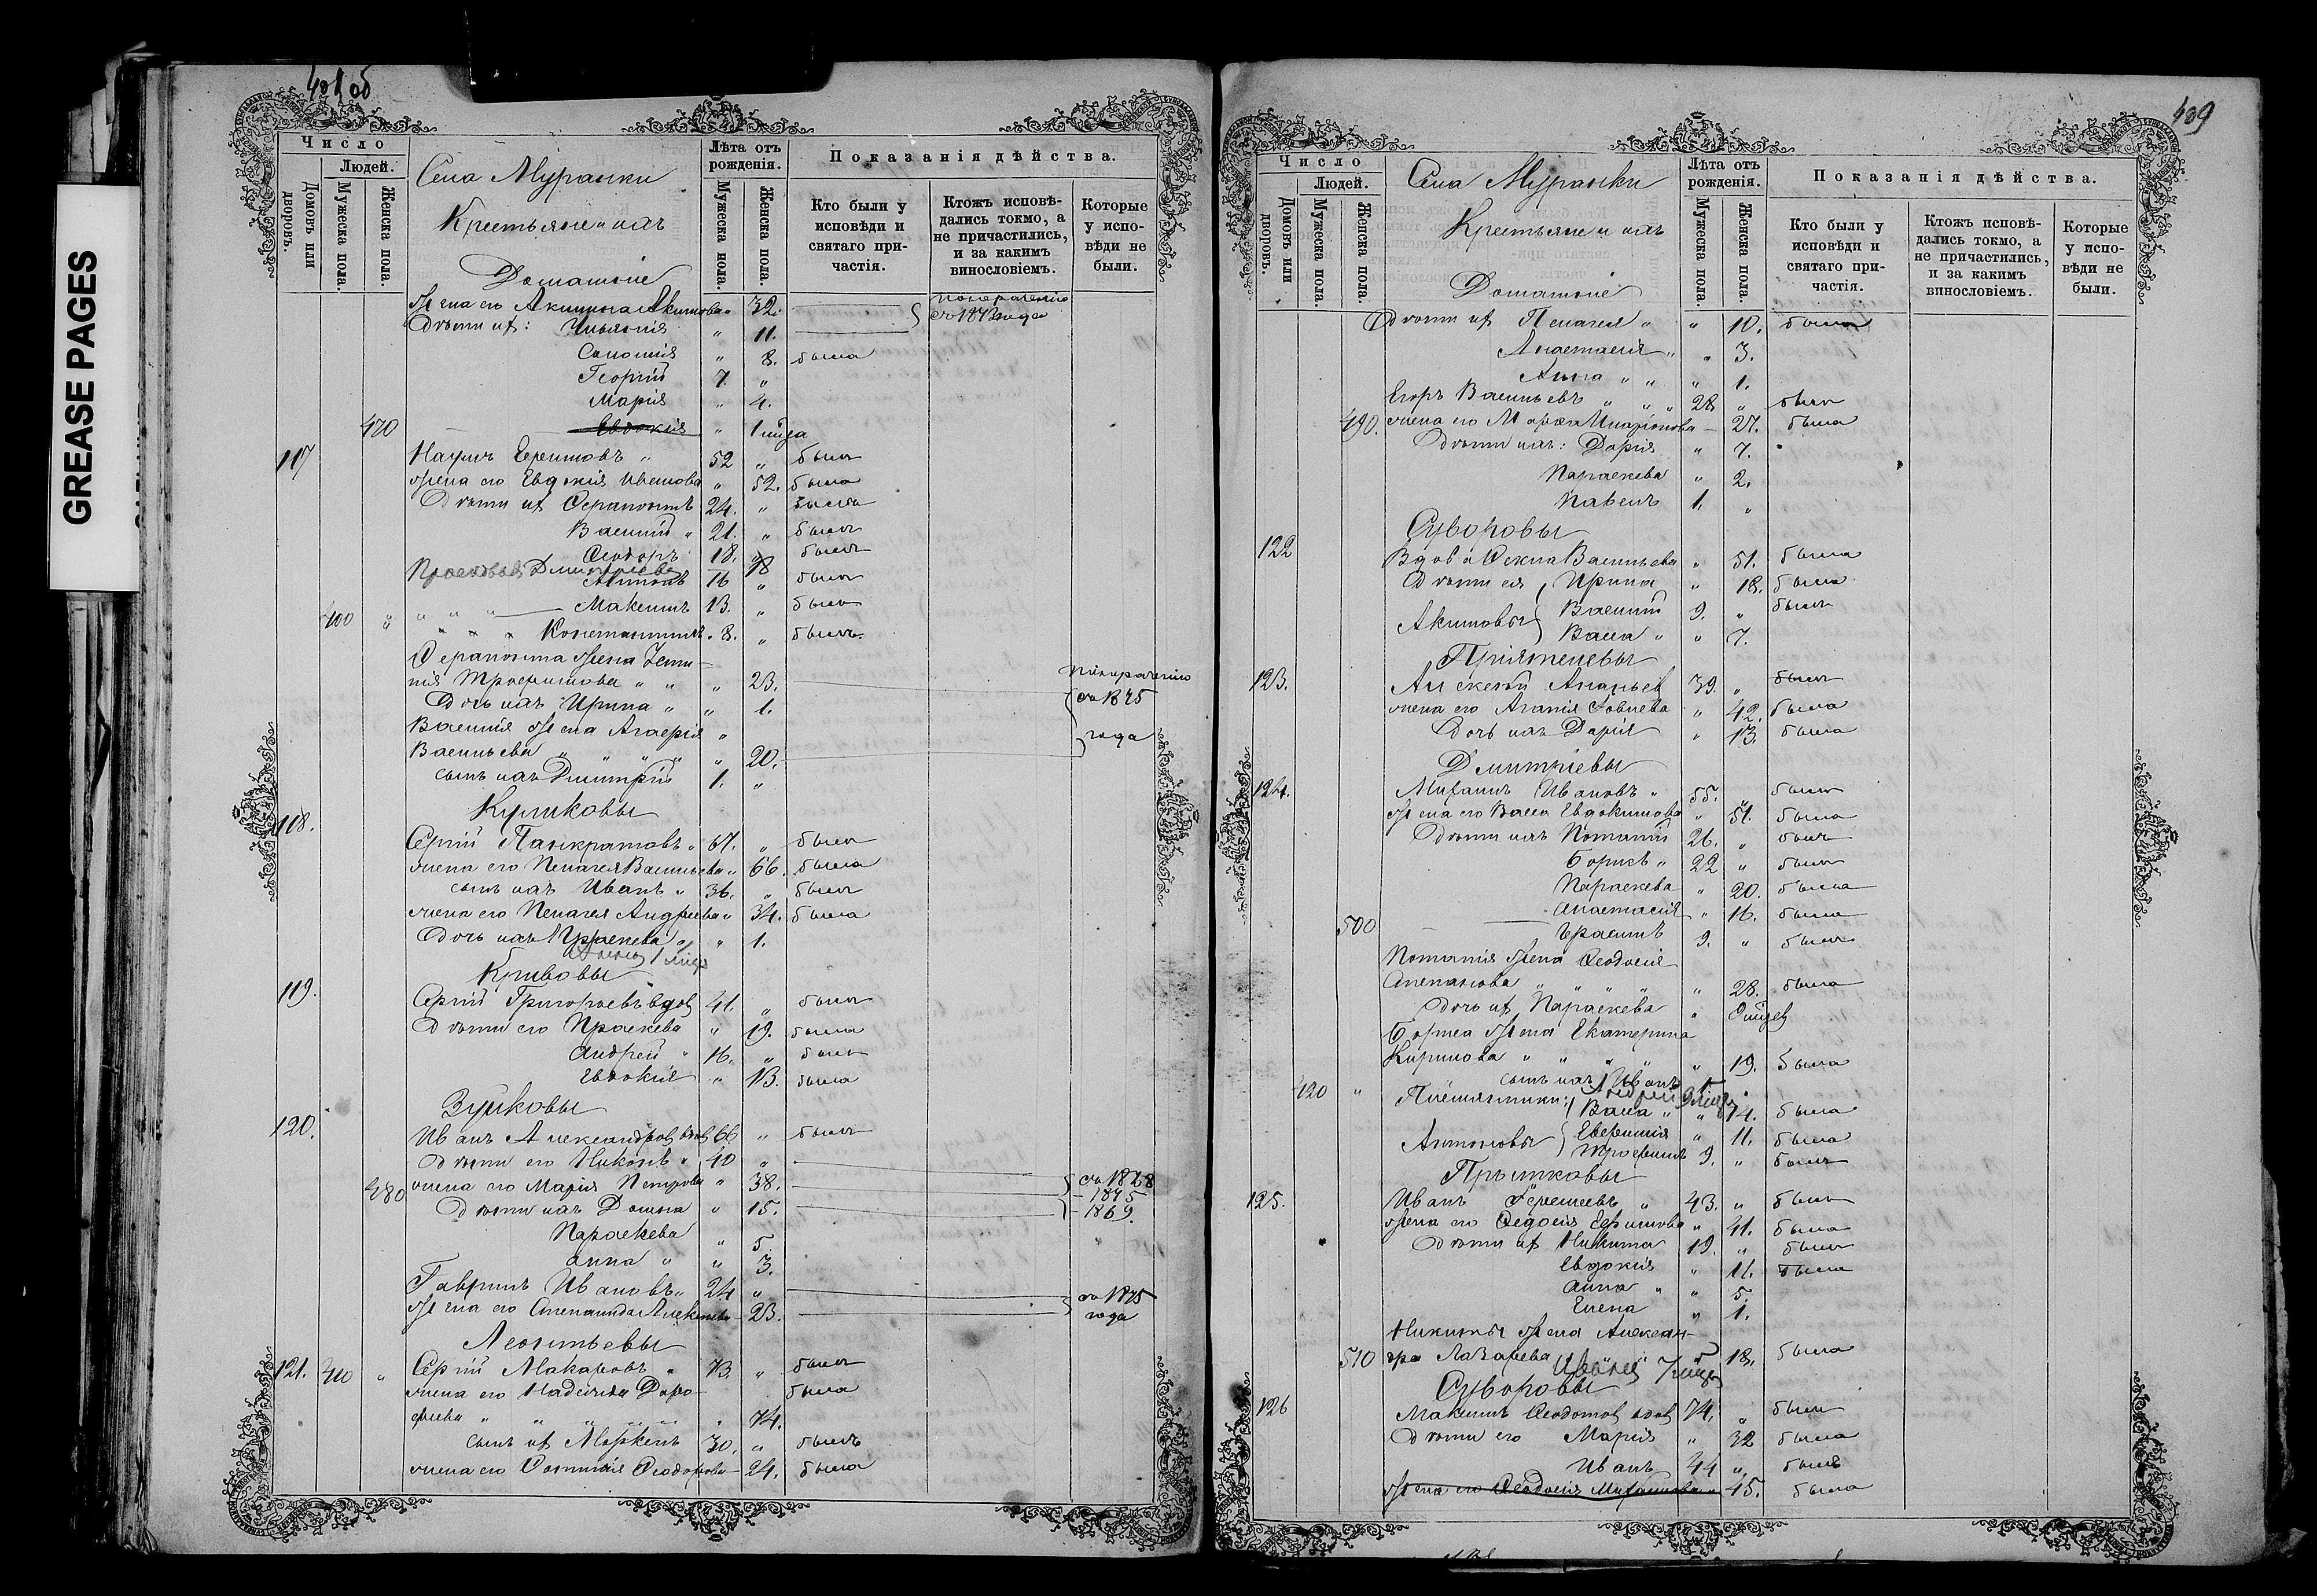 GREASE PAGES
Число
Людей.
Домовъ или дворовъ.
Мужеска пола.
Женска пола.
Села Муранки
Крестьяне и ихъ
Домашніе
Лѣта отъ рожденія.
Мужеска пола.
Женска пола.
Показанія дѣйства.
Кто были у исповѣди и святаго причастія.
Ктожъ исповѣдались токмо, а не причастились, и за какимъ винословіемъ.
Которые у исповѣди не были.
жена его Акилина Акимова " 32.
Дѣти их: " 11.
Саломія " 8. была
Георгій 7 "
Марія " 4.
470 Евдокія " 1
117 Наумъ Ефимовъ " 52 " былъ
жена его Евдокія Иванова " 52. была
Дѣти их Ферапонтъ 24. " былъ
Василій " 21. " былъ
Ѳеодоръ 18. " былъ
Дмитріева 18
Антонъ 16 " былъ
400 " " " " Максимъ 13. " былъ
" " " Константинъ 8. " былъ
Ферапонта жена
Трофимова " " " 23.
Дочь ихъ Ирина " " 1.
съ 1875
года
Василія жена Агафія "
Васильева " " " " " 20.
сынъ ихъ Дмитрій 1. "
Куликовы
118. Сергій Панкратовъ " 67. " былъ
жена его Пелагея Васильева " 66. была
сынъ ихъ Иванъ " 36. " былъ
жена его Пелагея Андреева " 34. была
Дочь ихъ Праскева " " 1.
Кривовы
119. Сергій Григорьевъ вдов 41. " былъ
Дѣти его Праскева " 19. была
Андрей " 16. " былъ
Евдокія " 13. была
Зуйковы
120. Иванъ Александров вдов 66 " былъ
Дѣти его Никонъ " 40 "
480 жена его Марія Петрова " 38.
Дѣти ихъ Домна " 15.
съ 1828
- 1875
- 1869.
Параскева " 5.
Анна " " 3.
Гавріилъ Ивановъ " 24 "
жена его Степанида Алексѣева 23.
съ 1875
года
Леонтьевы
121. 410 " Сергій Макаровъ " 73. " былъ
жена его Надежда Доро- была
феева " " " " " " 74.
сынъ их Маркелъ 30. " былъ
жена его Ѳеодорова 24. была
409
Число
Людей.
Домовъ или дворовъ.
Мужеска пола.
Женска пола.
Села Муранки
Крестьяне и ихъ
Домашніе
Лѣта отъ рожденія.
Мужеска пола.
Женска пола.
Показанія дѣйства.
Кто были у исповѣди и святаго причастія.
Ктожъ исповѣдались токмо, а не причастились, и за какимъ винословіемъ.
Которые у исповѣди не были.
Дѣти их Пелагея " " 10. была
Анастасія " " 3.
Анна " " " 1.
Егоръ Васильевъ " " " 28 " былъ
490. жена его Марѳа Иларіонова 27. была
Дѣти ихъ: Дарія " 7. "
Параскева " 2.
Павелъ 1. "
Суворовы
122 Вдова Ѳекла Васильева " 51. была
Дѣти ея Ирина " 18. была
Акимовы Василій 9. " былъ
Васса " " 7.
Пріятелевы
123. Алексѣй Ананьев 39. " былъ
жена его Агапія Іовлева " 42. была
Дочь ихъ Дарія " 13. была
Дмитріевы
124. Михаилъ Ивановъ " 55. " былъ
жена его Васса Евдокимова " 51. была
Дѣти ихъ Потапій 26. " былъ
Борисъ " 22 " былъ
Параскева " 20. была
500 Анастасія " 16. была
Герасимъ 9. " былъ
Потапія жена Ѳеодосія
Степанова " " " " " 28. была
Дочь их Параскева "
Бориса жена Екатерина
Кирилова " " " " " 19. была
сынъ ихъ Иванъ 1 "
420 " Племянники: Васса " " 14. была
Антоновы Евфимія " 11. была
Трофимъ 9. " былъ
Прытковы
125. Иванъ Геремеевъ " 43. " былъ
жена его Ѳедосія Ефимова " 41. была
Дѣти их Никита 19. " былъ
Евдокія " 11. была
Анна " " 5.
Елена " 1.
Никиты жена Алексан-
510 дра Лазарева " 18. была
Суворовы
126 Максимъ Ѳеодотов вдов 74. " былъ
Дѣти его Марія " 32 была
Иванъ 44 " былъ
жена его Ѳеодосія Михаилова " 45. была